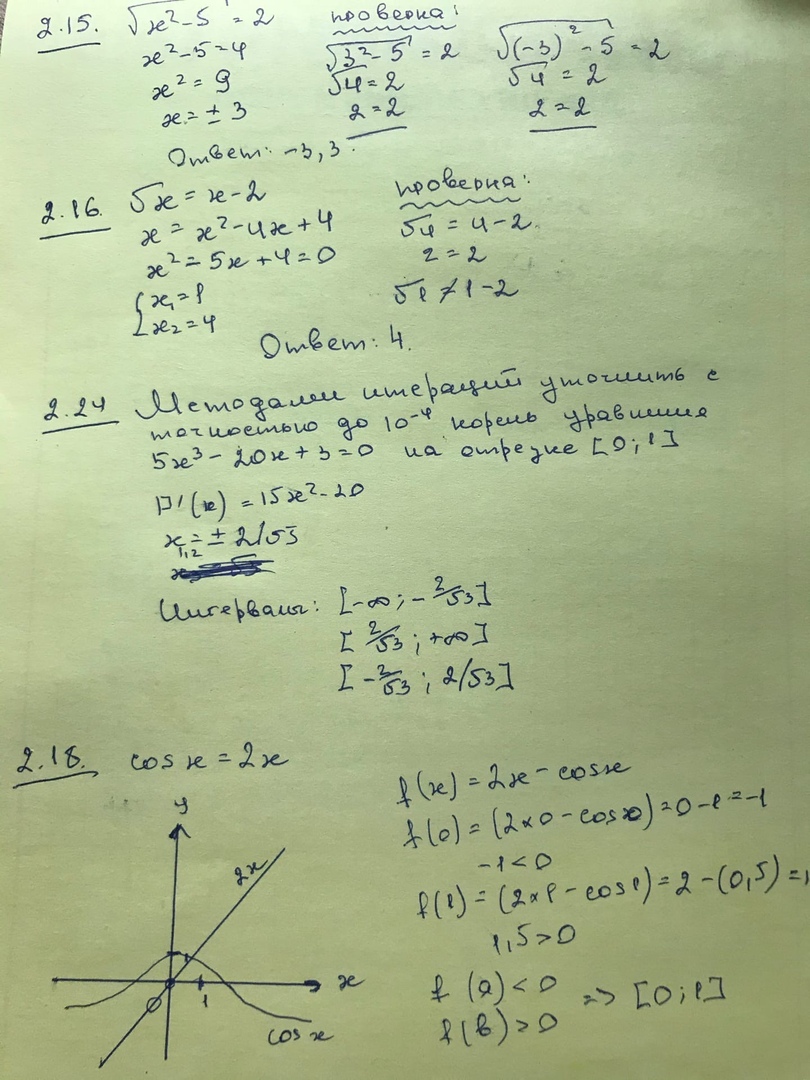 2.15. √x²-5 = 2
x²-5=4
x² = 9
x = ± 3
проверка:
√3²-5 = 2
√4 = 2
2 = 2
√(-3)²-5 = 2
√4 = 2
2 = 2
Ответ: -3, 3.
2.16. √x = x-2
x = x²-4x+4
x² = 5x+4=0
x₁ = 1
x₂ = 4
проверка:
√4 = 4-2
2 = 2
√1 ≠ 1-2
Ответ: 4.
2.24 Методами итераций уточнить с
точностью до 10⁻⁴ корень уравниния
5x³ - 20x + 3 = 0 на отрезке [0; 1]
F'(x) = 15x²-20
x₁,₂ = ± 2/√3
Интервалы: [-∞; -2/√3]
[2/√3; +∞]
[-2/√3; 2/√3]
2.18. cos x = 2x
y
2x
x
1
cos x
f(x) = 2x - cosx
f(0) = (2×0 - cos0) = 0-1 = -1
-1 < 0
f(1) = (2×1 - cos1) = 2 - (0,5) = 1,
1,5 > 0
f (a) < 0
f(b) > 0
=> [0; 1]